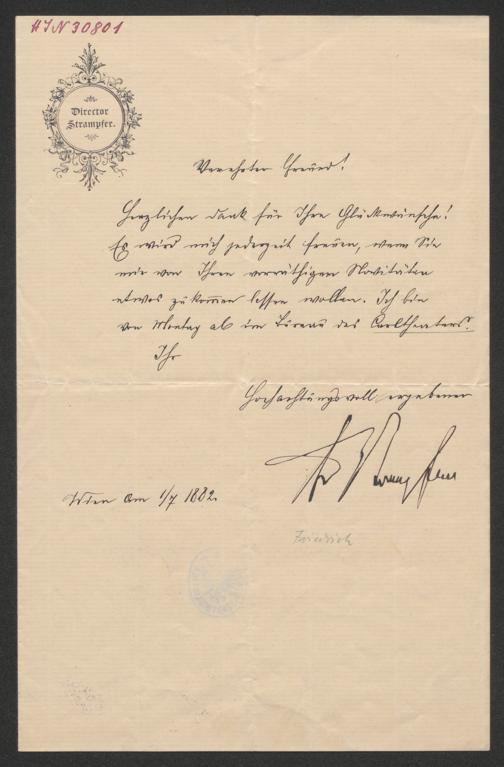 HIN 30801
Director
Strampfer.
Verehrter Freund!
Herzlichen Dank für Ihre Glückwünsche!
Es wird mich jederzeit freuen, wenn Sie
mir von Ihren vorräthigen Novitäten
etwas zukommen lassen wollen. Ich bin
von Montag ab im Bureau des Carltheaters.
Ihr
Hochachtungsvoll ergebener
Fr Strampfer
Wien am 1/7 1882.
Friedrich